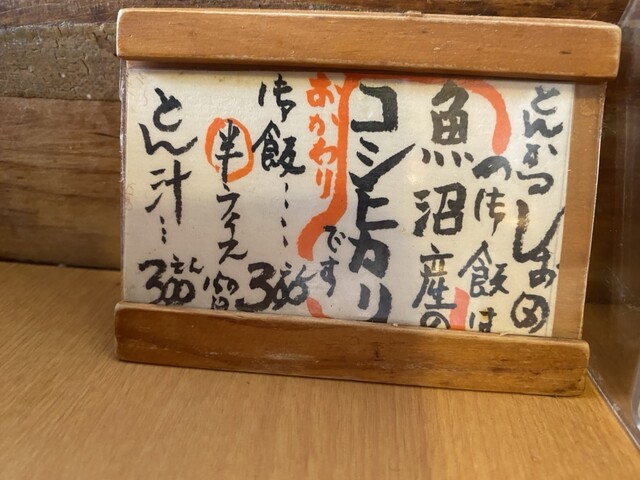 とんかつ しお田
の御飯は
魚沼産の
コシヒカリ
です
おかわり
御飯……300
半ライス 150円
とん汁…300えん